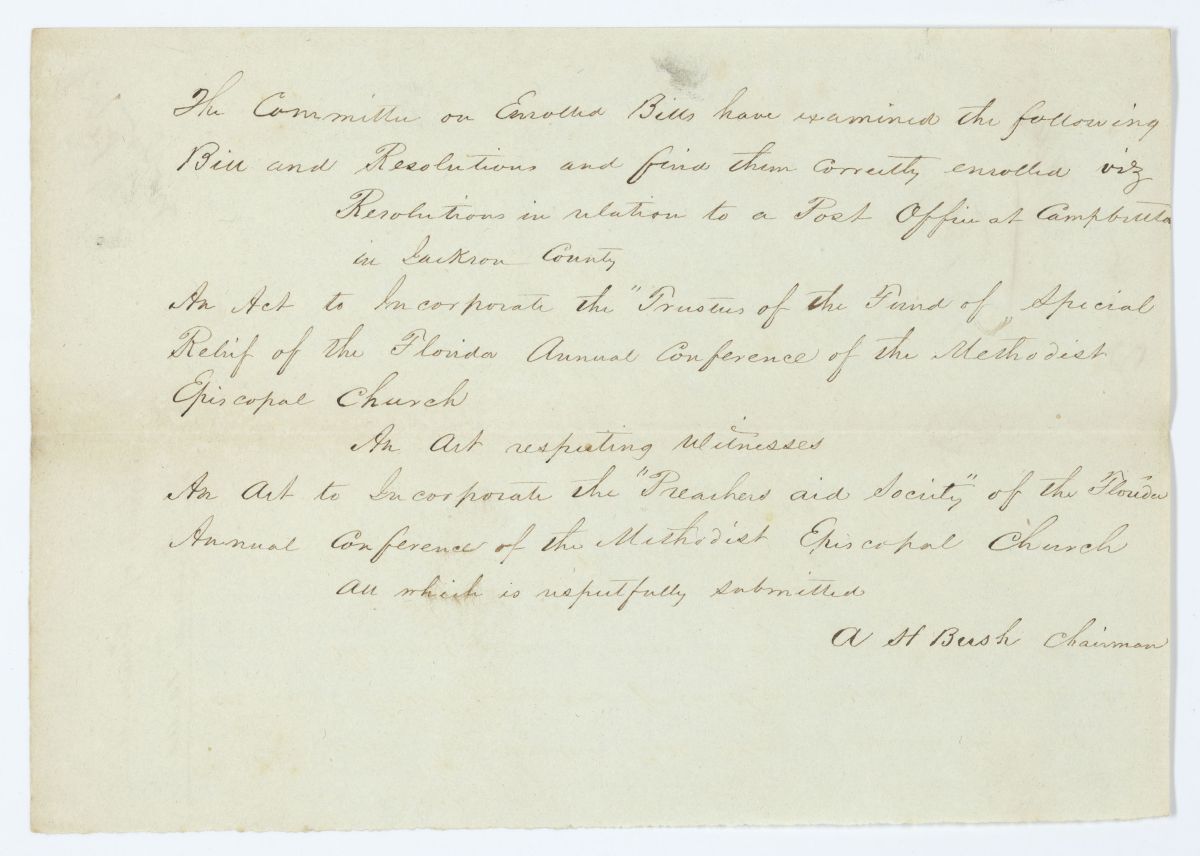 The Committee on Enrolled Bills have examined the following
Bill and Resolutions and find them correctly enrolled viz
Resolutions in relation to a Post Office at Campbellto
in Jackson County
An Act to Incorporate the "Trustees of the Fund of „ Special
Relief of the Florida Annual Conference of the Methodist
Episcopal Church
An Act respecting Witnesses
An Act to Incorporate the "Preachers aid Society" of the Florida
Annual Conference of the Methodist Episcopal Church
All which is respectfully submitted
A H Bush Chairman